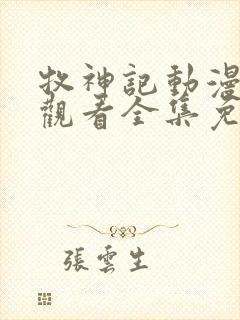 牧神記動漫
觀看全集免
張雲生